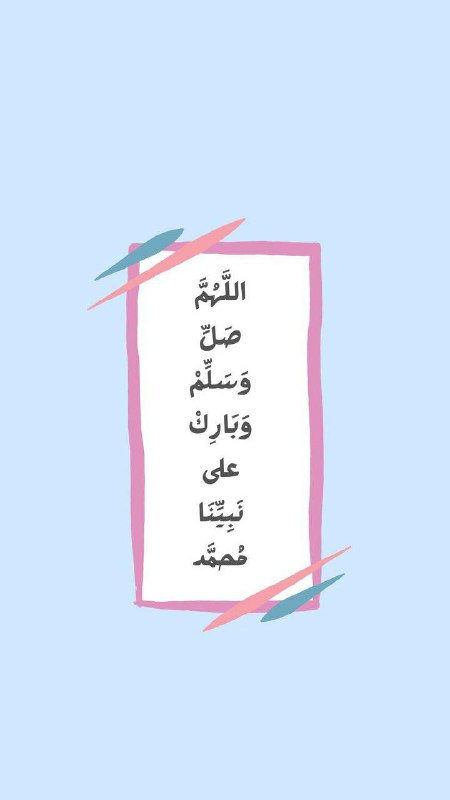 اللَّهُمَّ
صَلِّ
وَسَلِّمْ
وَبَارِكْ
على
نَبِيِّنَا
مُحمَّد